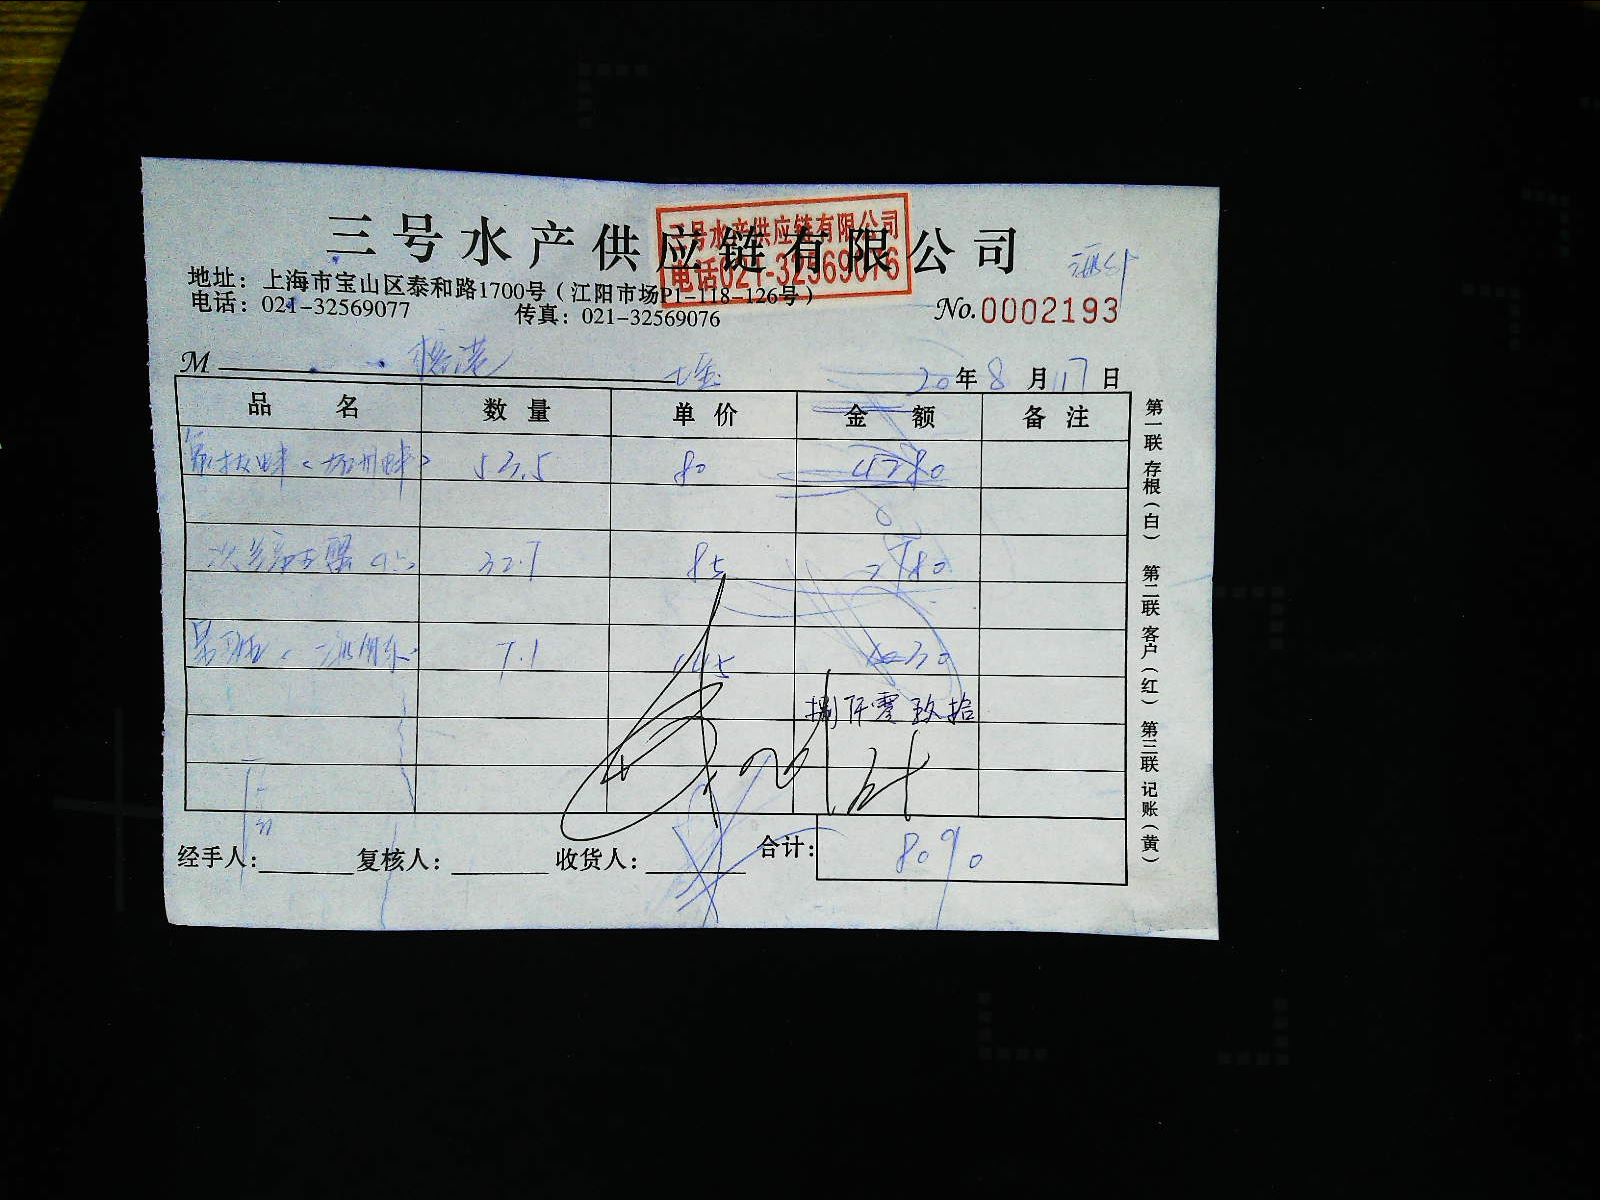 三号水产供应链有限公司
三号水产供应链有限公司
电话021-32569076
地址：上海市宝山区泰和路1700号（江阳市场P1-118-126号）
电话：021-32569077 传真：021-32569076
No.0002193
M 20年8月17日
品名 数量 单价 金额 备注
53.5 80 4280
32.7 85 2780
7.1 145 1030
捌仟零玖拾
经手人： 复核人： 收货人： 合计：8090
第一联 存根（白） 第二联 客户（红） 第三联 记账（黄）